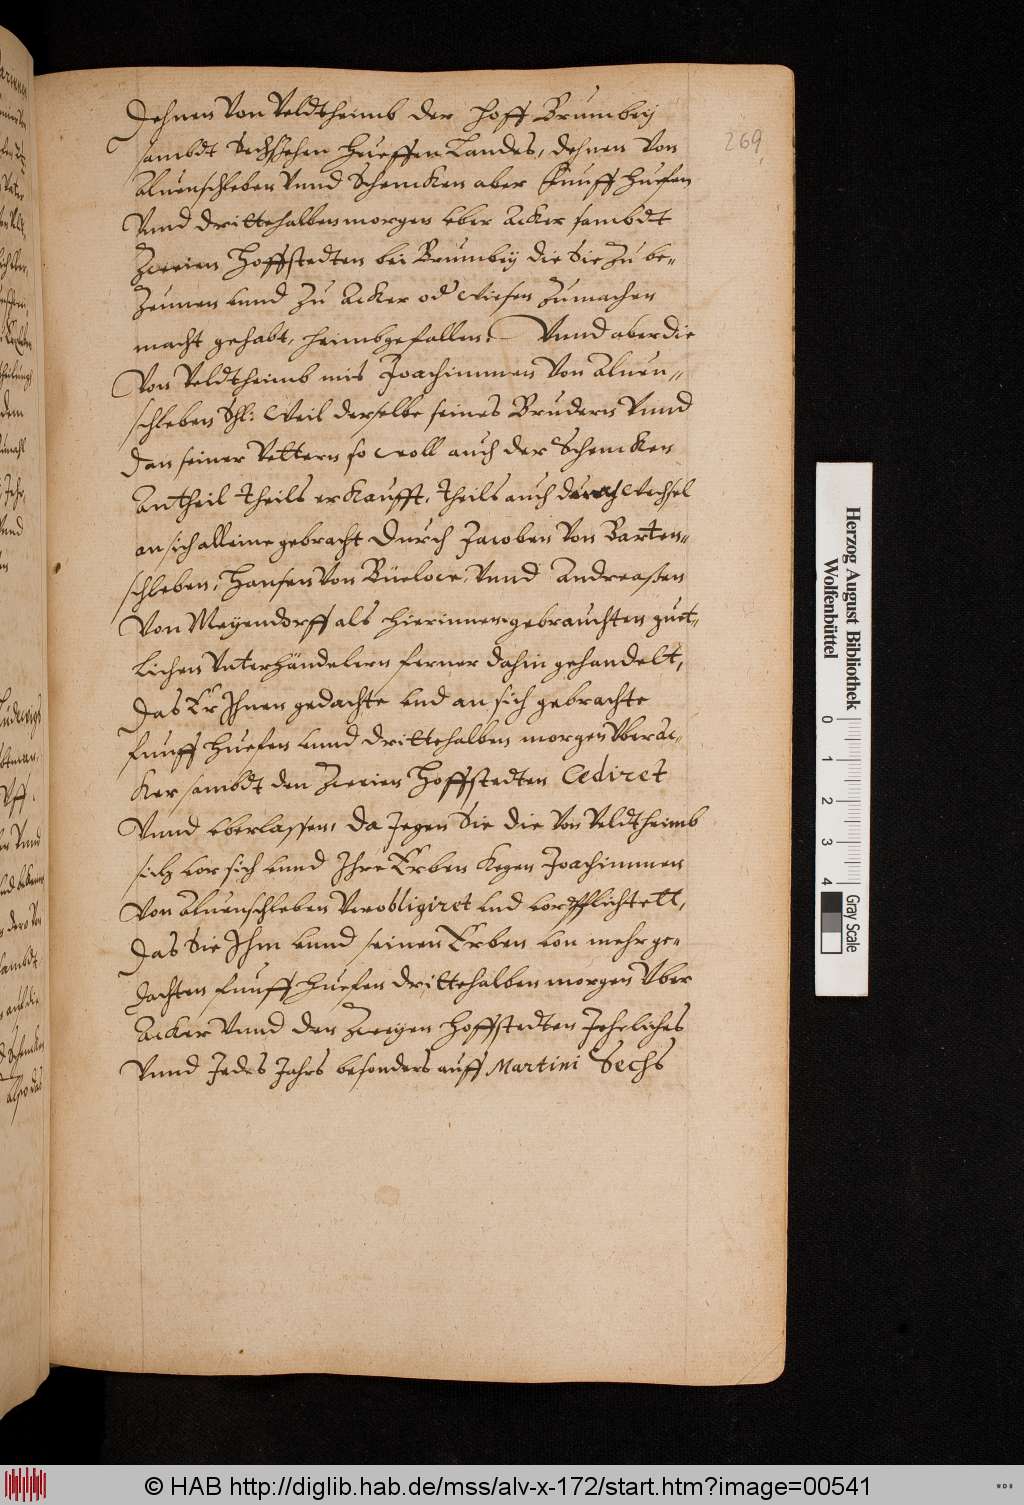 Dehnen Von Veldtheimb der hoff Brumbeÿ
sambdt Sechßehen Hueffen Landes, dehnen Von
Aluenschleben Vnnd Schencken aber fünff Huefen
Vnnd drittehalben morgen vber Acker sambdt
Zweien Hoffstedten bei Brumbÿ die Sie Zu be-
Zeunen vnnd Zu Acker od Wiesen Zumachen
macht gehabt, heimbgefallen: Vnnd aber die
Von Veldtheimb mit Joachimmen Von Aluen-
schleben Shl: Weil derselbe seines Brudern Vnnd
dan seiner Vettern so woll auch der Schencken
Antheil theils erkaufft, theils auch durch Wechsel
an sich alleine gebracht durch Jacoben Von Barten-
schleben, Hansen Von Büelow, Vnnd Andreaßen
Von Meÿendorff als hierinnen gebrauchten guet-
lichen Vnterhändelern ferner dahin gehandelt,
das Er Ihnen gedachte vnd an sich gebrachte
funff Huefen vnnd drittehalben morgen Vberac-
ker sambdt den Zweien Hoffstedten Cediret
Vnnd vberlassen, da Jegen Sie die Von Veldtheimb
sich vor sich vnnd Ihre Erben kegen Joachimmen
Von Aluenschleben Verobligiret vnd vorpflichtett,
das Sie Ihm vnnd seinen Erben von mehr ge-
dachten funff Huefen drittehalben morgen Vber
Acker Vnnd den Zweÿen Hoffstedten Jehrliches
Vnnd Jedes Jahrs besonders auff Martini Sechs
269
Herzog August Bibliothek
Wolfenbüttel
0 1 2 3 4
Gray Scale
© HAB http://diglib.hab.de/mss/alv-x-172/start.htm?image=00541